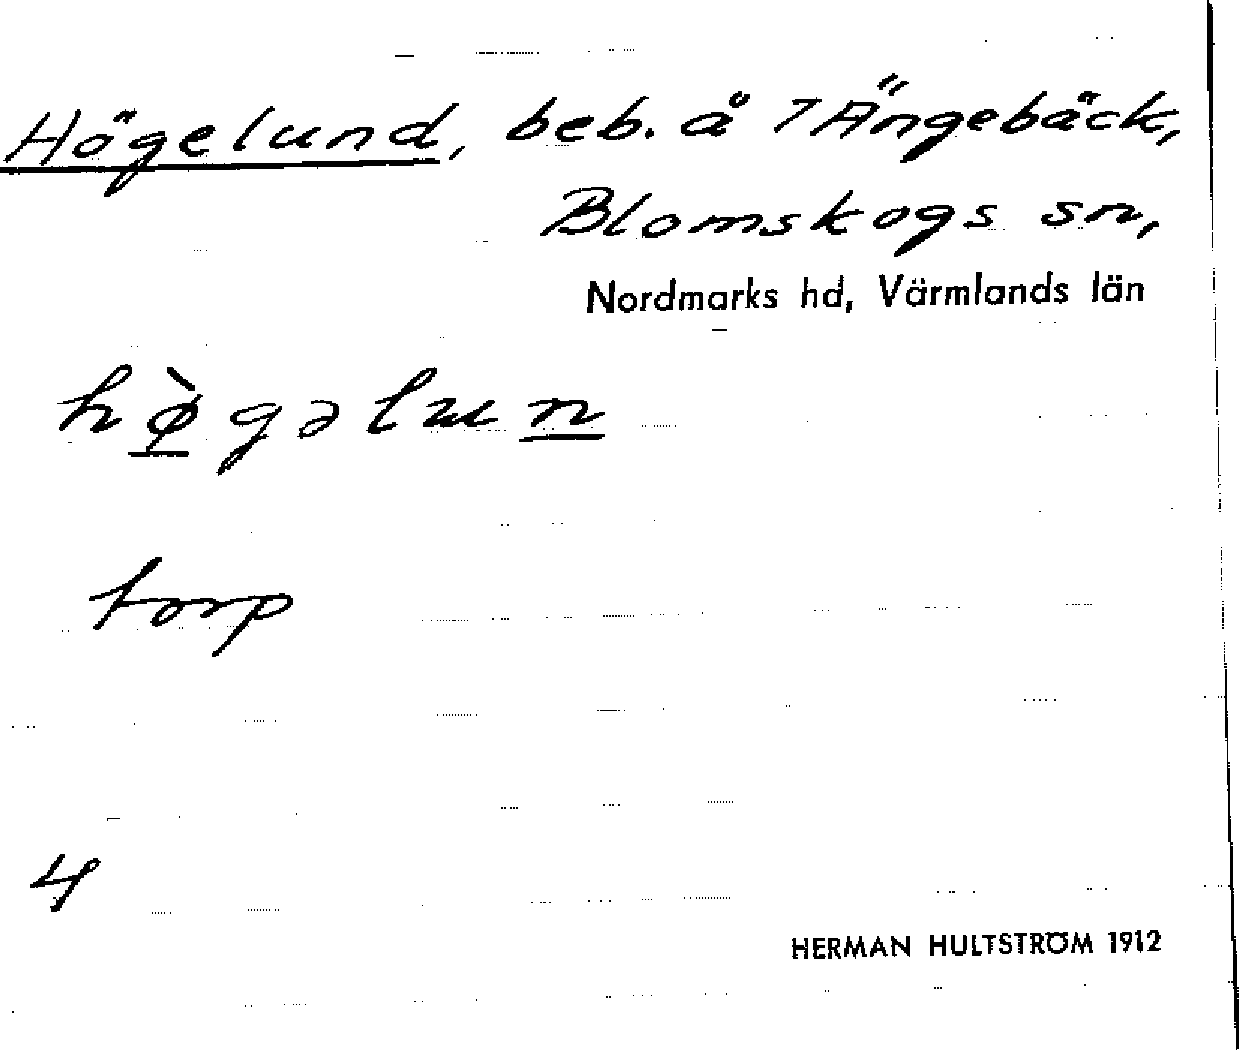 Högelund, beb. å 7 Ängebäck,
Blomskogs sn,
Nordmarks hd, Värmlands län
hø̀gəlun
torp
4
HERMAN HULTSTRÖM 1912